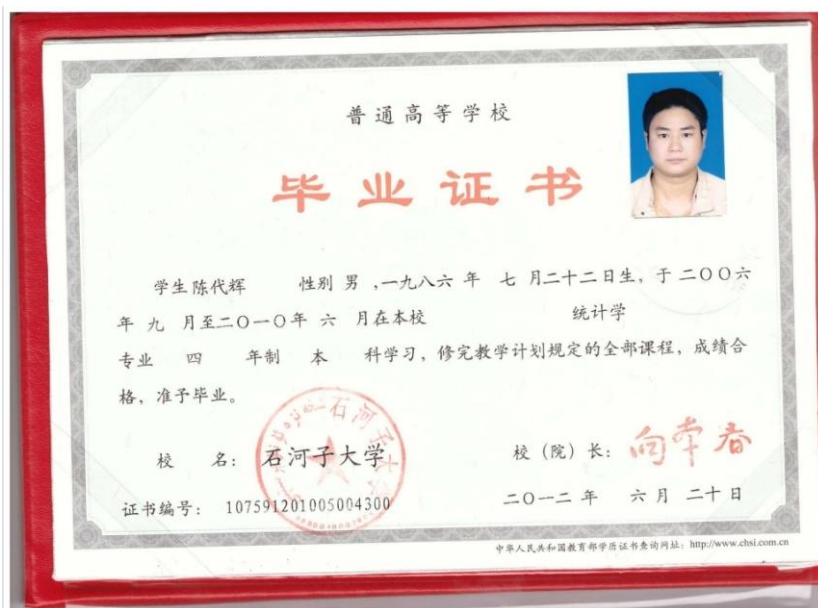 普通高等学校
毕业证书
学生 陈代辉 性别 男 ,一九八六 年 七 月二十二日生，于 二〇〇六
年 九 月至二〇一〇年 六 月在本校 统计学
专业 四 年制 本 科学习，修完教学计划规定的全部课程，成绩合
格，准予毕业。
校 名： 石河子大学
校（院）长：
证书编号： 107591201005004300
二〇一二 年 六 月 二十 日
中华人民共和国教育部学历证书查询网址：http://www.chsi.com.cn